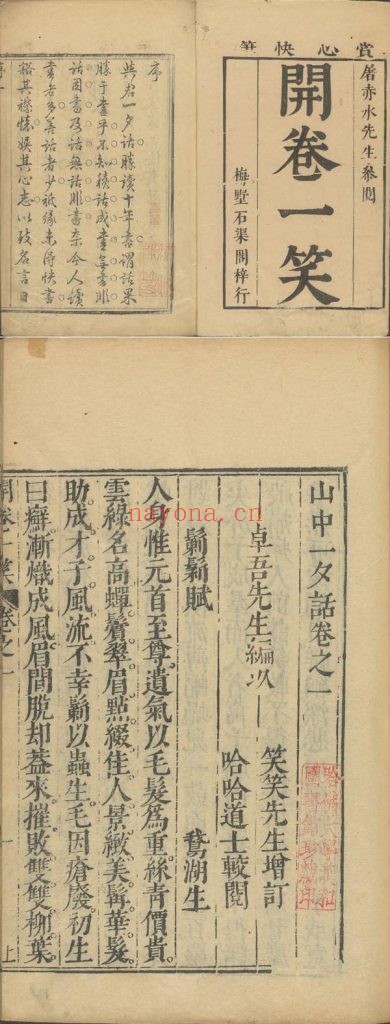 賞心快筆
屠赤水先生參閱
開卷一笑
梅墅石渠閣梓行
序
與君一夕話勝讀十年書謂話果
勝于書乎不知積話成書無書非
話因書乃話無話非書奈今人讀
書者多善話者少祗緣未得快書
豁其襟懷娛其心志以致名言日
序一
山中一夕話卷之一
卓吾先生編次
笑笑先生增訂
哈哈道士較閱
鬎鬁賦
鵞湖生
人身惟元首至尊遺氣以毛髮為重絲青價貴
雲綠名高蟬鬢翠眉點綴佳人景緻美髯華髮
助成才子風流不幸鬎以蟲生毛因瘡廢初生
曰癬漸熾成風眉間脫却蓋來摧敗雙雙柳葉
開卷一笑 卷之一
一
上
nayona.cn